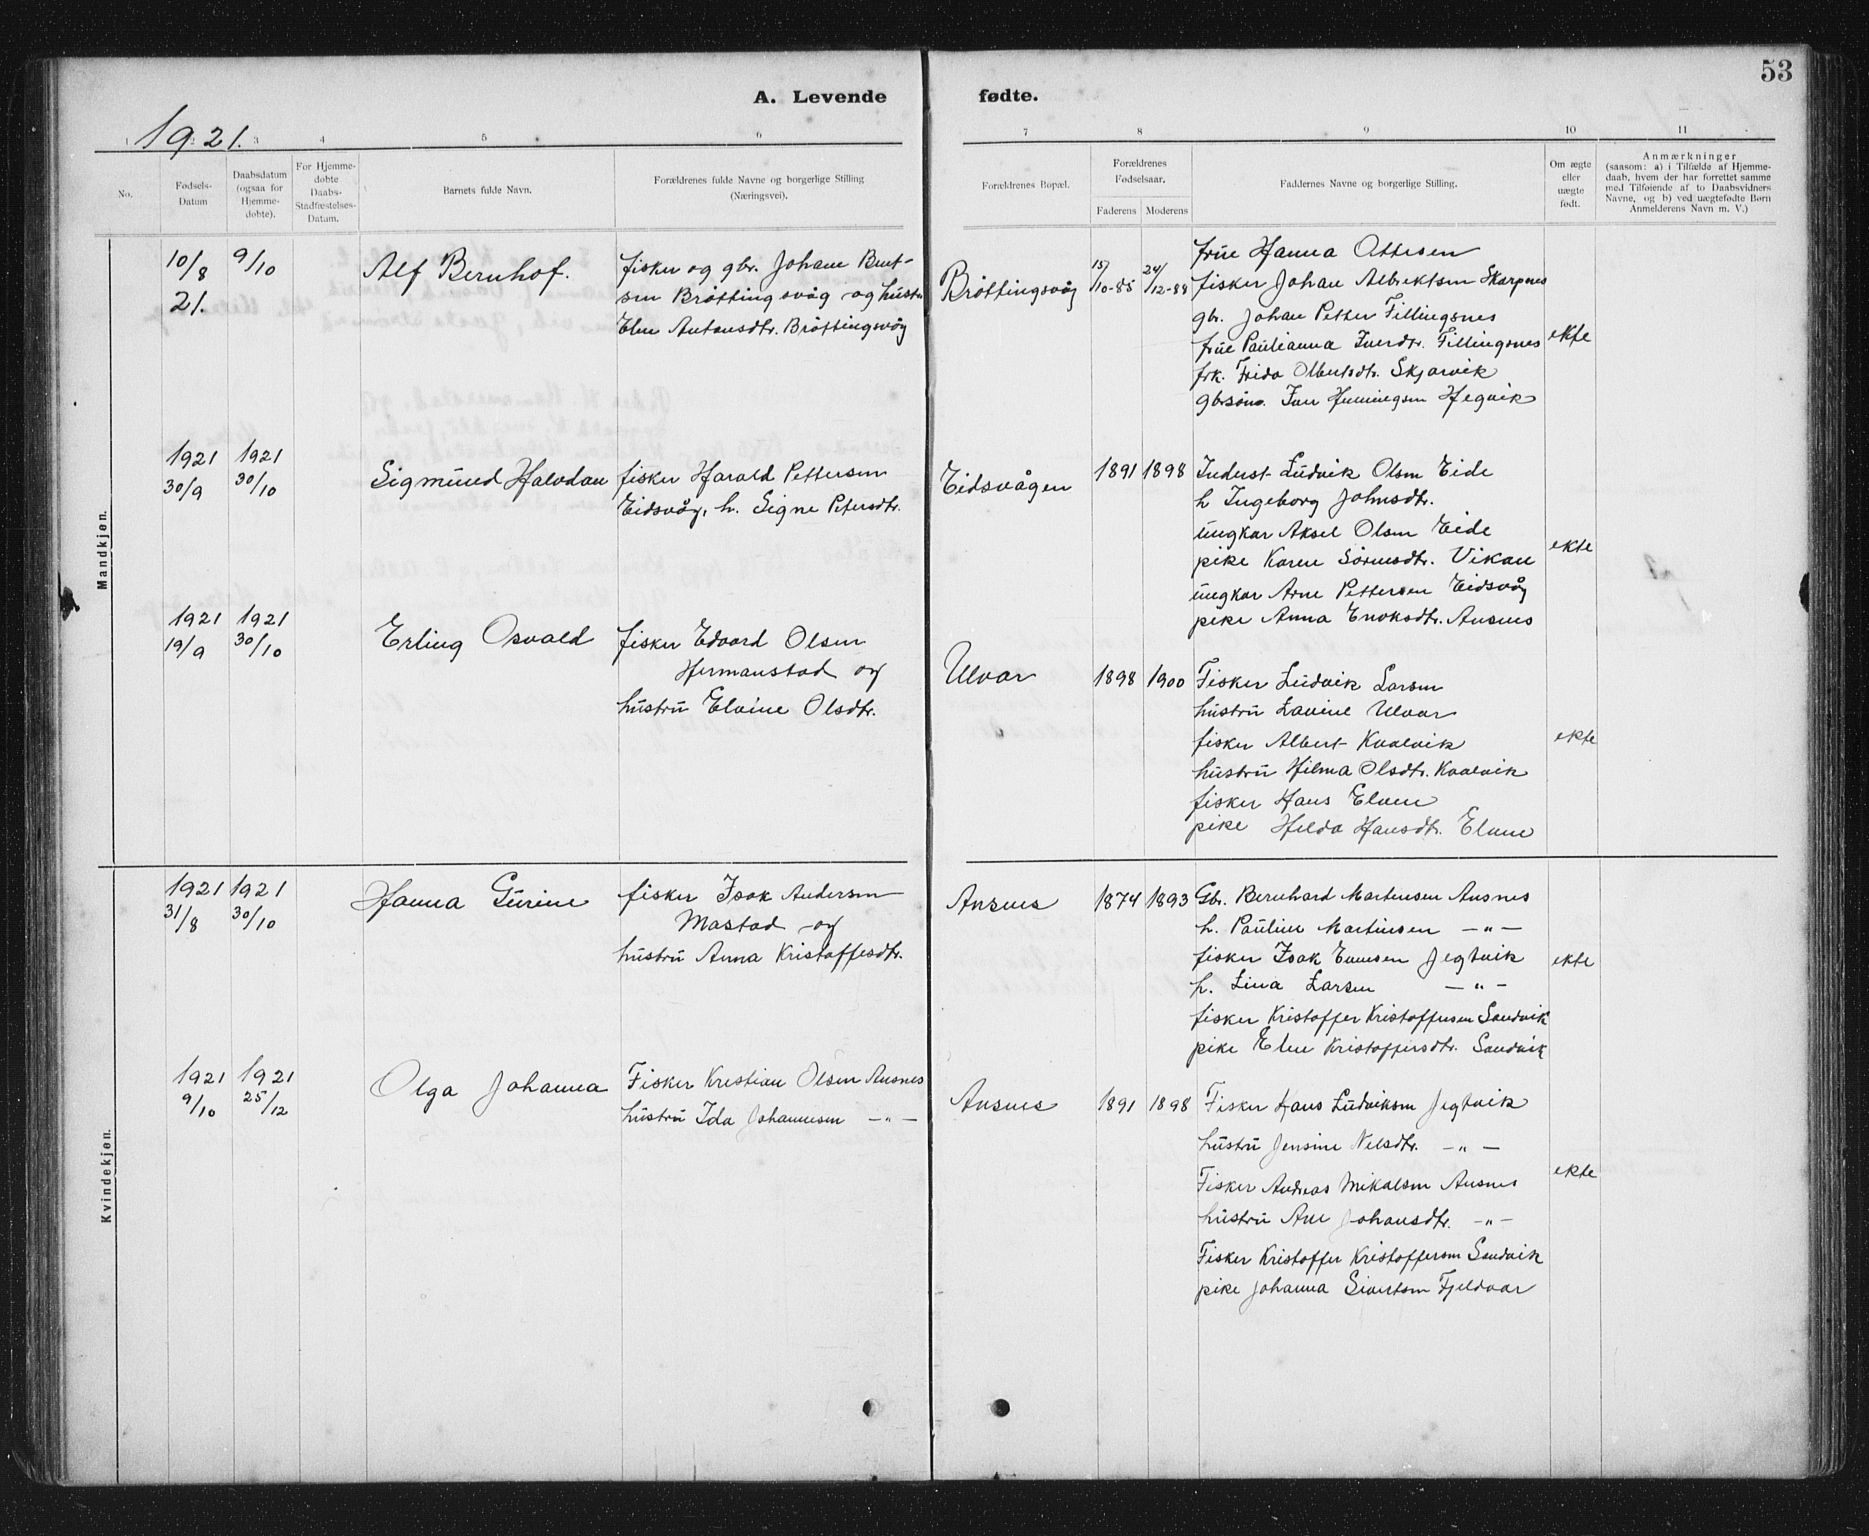 53
A. Levende fødte.
1921.
1 2 3 4 5 6 7 8 9 10 11
No.
Fødsels-Datum
Daabsdatum (ogsaa for Hjemme-døbte).
For Hjemme-døbte Daabs-Stadfæstelses-Datum.
Barnets fulde Navn.
Forældrenes fulde Navne og borgerlige Stilling (Næringsvei).
Forældrenes Bopæl.
Forældrenes Fødselsaar.
Faderens Moderens
Faddernes Navne og borgerlige Stilling.
Om ægte eller uægte født.
Anmærkninger
(saasom: a) i Tilfælde af Hjemme-
daab, hvem der har forrettet samme
med Tilføiende af to Daabsvidners
Navne, og b) ved uægtefødte Børn
Anmelderens Navn m. V.)
Mandkjøn.
10/8 21. 9/10
Alf Bernhof.
fisker og gbr. Johan Bent-
sen Bröttingsvåg og hustr
Elen Antonsdtr. Bröttingsvåg
Bröttingsvåg
15/10-85 24/12-88
frue Hanna Ottesen
fisker Johan Albrektsen Skarpnes
gbr. Johan Petter Fillingsnes
frue Paulianna Iversdtr. Fillingsnes
frk. Frida Olbertsdtr. Skjarvik
gbrsönn. Iver Henningsen Hegvik
ekte
1921 30/9 1921 30/10
Sigmund Halvdan
fisker Harald Pettersen
Eidsvåg, h. Signe Petersdtr.
Eidsvågen
1891 1898
Inderst Ludvik Olsen Eide
h Ingeborg Johnsdtr.
ungkar Aksel Olsen Eide
pike Karen Sörensdtr. Vikan
ungkar Arne Pettersen Eidsvåg
pike Anna Enoksdtr. Ansnes
ekte
1921 19/9 1921 30/10
Erling Osvald
fisker Edvard Olsen
Hermanstad og
hustru Elvine Olsdtr.
Ulvar
1898 1900
Fisker Ludvik Larsen
hustru Lavine Ulvar
fisker Albert Kvalvik
hustru Hilma Olsdtr. Kvalvik
fisker Hans Elven
pike Helda Hansdtr. Elven
ekte
Kvindekjøn.
1921 31/8 1921 30/10
Hanna Gurine
fisker Isak Andersen
Mastad og
hustru Anna Kristoffesdtr.
Ansnes
1874 1893
Gbr. Bernhard Martinsen Ansnes
h. Pauline Martinsen — " —
fisker Isak Evensen Jegtvik
h. Lina Larsen — " —
fisker Kristoffer Kristoffersen Sandvik
pike Elen Kristoffersdtr. Sandvik
ekte
1921 9/10 1921 25/12
Olga Johanna
Fisker Kristian Olsen Ansnes
hustru Ida Johannesen — " —
Ansnes
1891 1898
Fisker Hans Ludviksen Jegtvik
hustru Jensine Nelsdtr. — " —
Fisker Andreas Mikalsen Ansnes
hustru Ane Johansdtr. — " —
Fisker Kristoffer Kristoffersen Sandvik
pike Johanna Sivertsen Fjeldvar
ekte